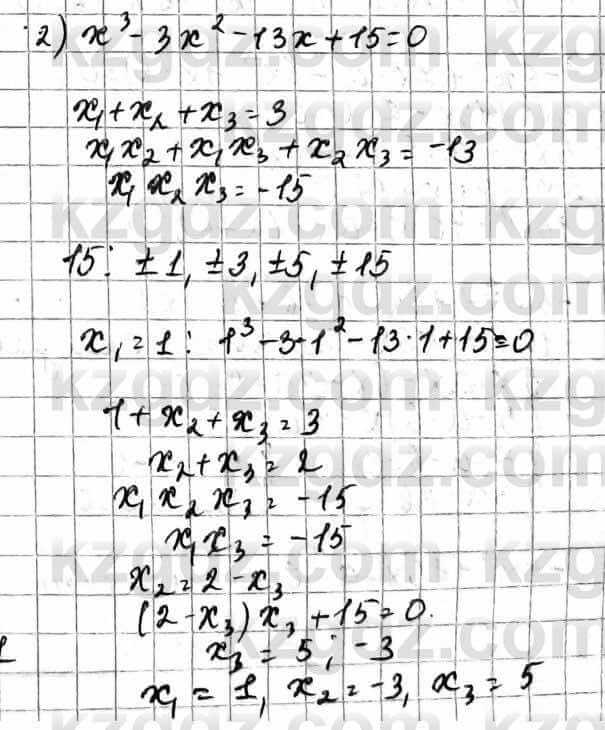 2) x³ - 3x² - 13x + 15 = 0
x₁ + x₂ + x₃ = 3
x₁x₂ + x₁x₃ + x₂x₃ = -13
x₁ x₂ x₃ = -15
15: ±1, ±3, ±5, ±15
x₁ = 1: 1³ - 3·1² - 13·1 + 15 = 0
1 + x₂ + x₃ = 3
x₂ + x₃ = 2
x₁ x₂ x₃ = -15
x₁ x₃ = -15
x₂ = 2 - x₃
(2 - x₃) x₃ + 15 = 0.
x₃ = 5; -3
x₁ = 1, x₂ = -3, x₃ = 5